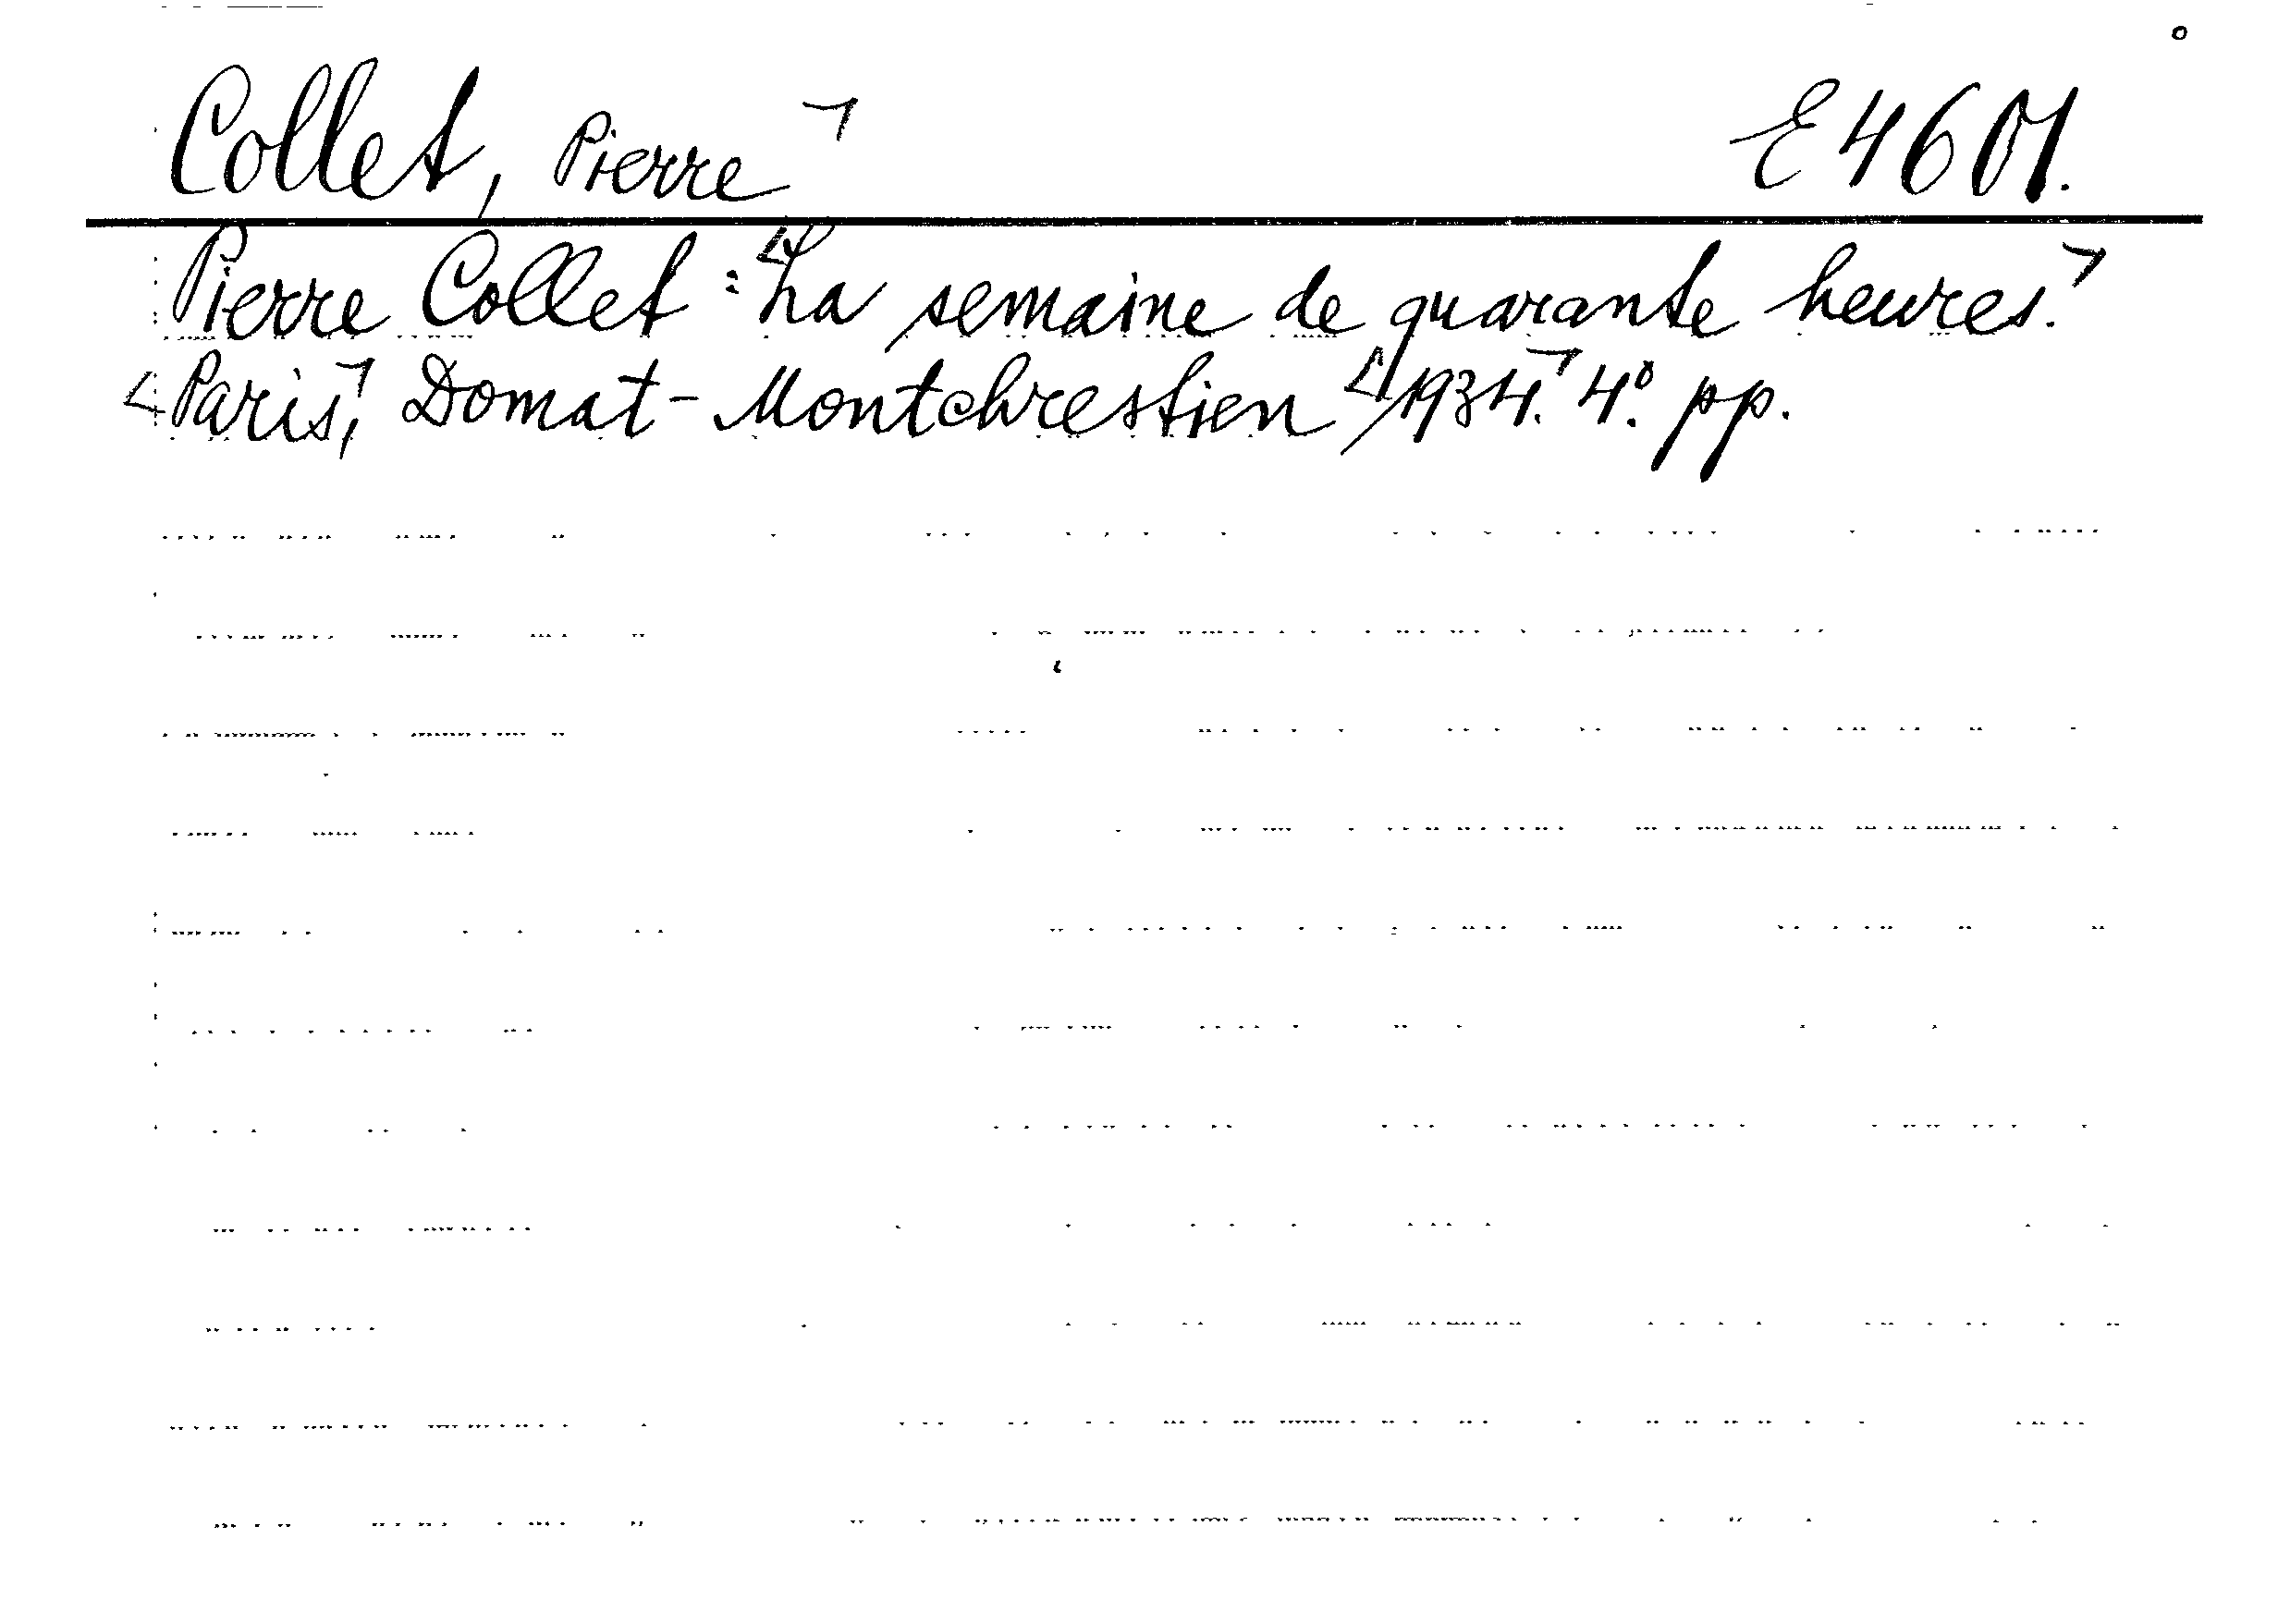 Collet, Pierre E 4601.
Pierre Collet: La semaine de quarante heures.
Paris, Domat-Montchrestien 1934. 4º. pp.